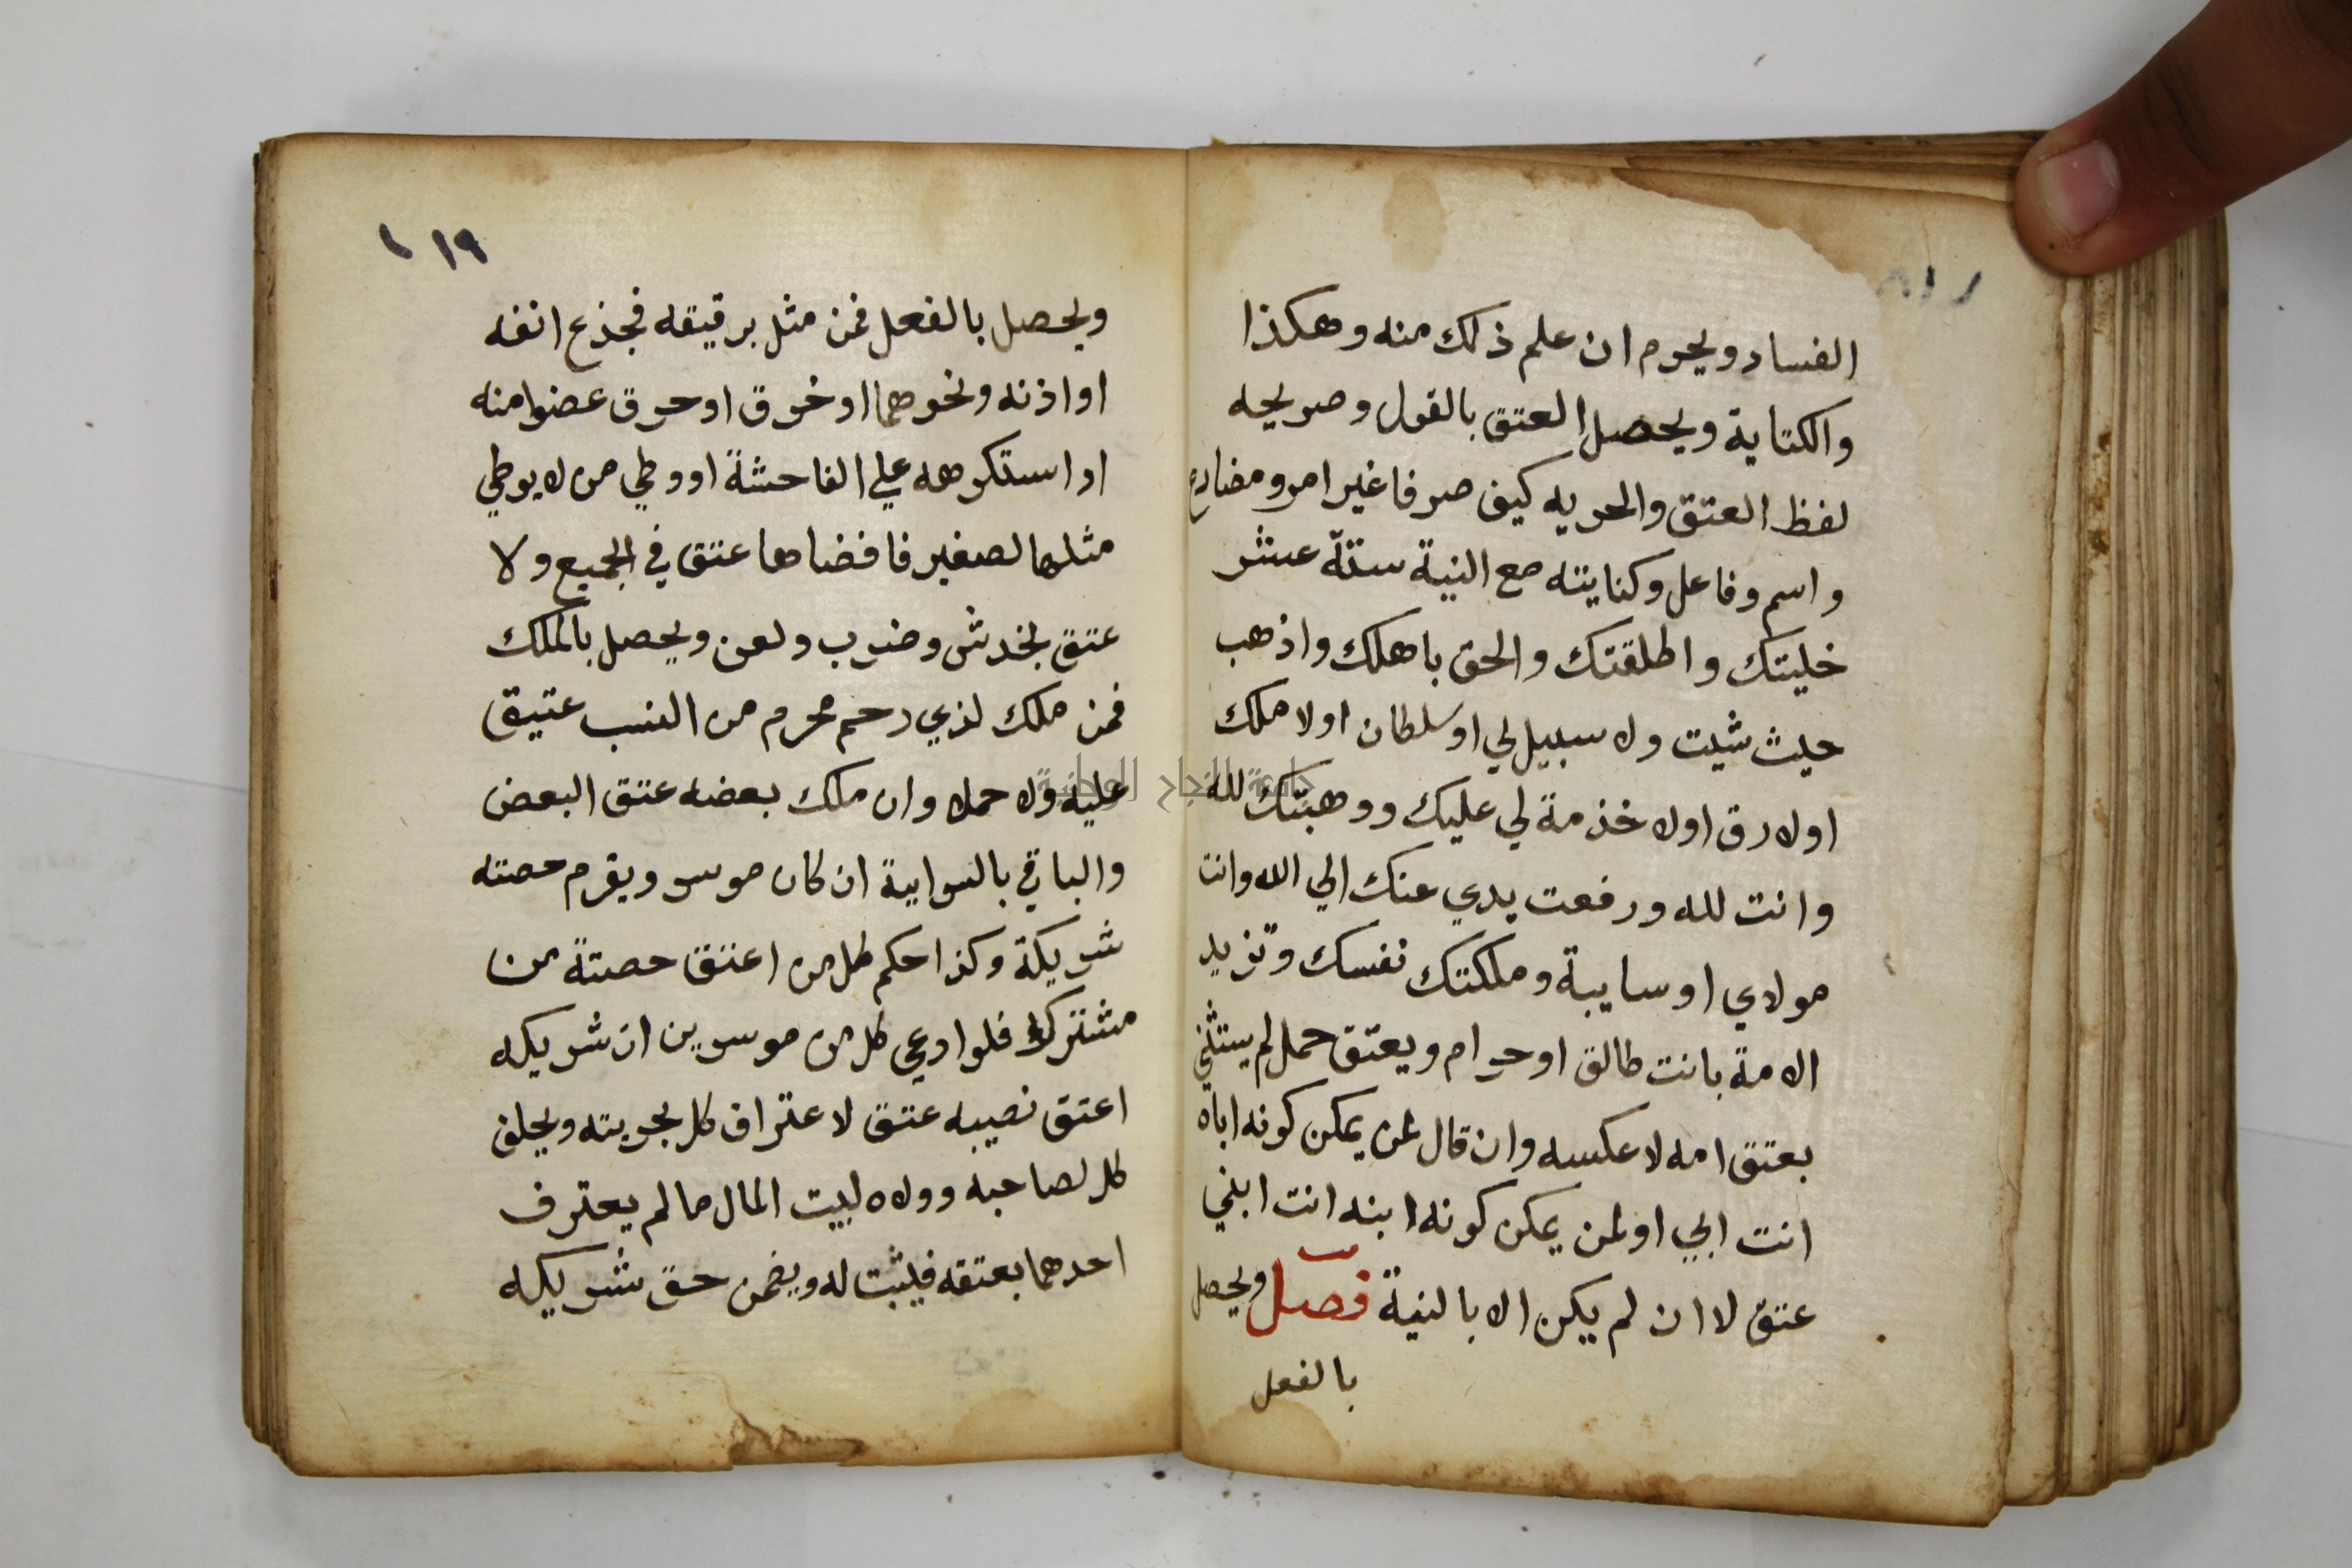 ١١٨
الفساد ويحرم ان علم ذلك منه وهكذا
والكتابة ويحصل العتق بالقول وصريحه
لفظ العتق والحريه كيف صرفا غير امر ومضارع
واسم وفاعل وكنايته مع النية ستة عشر
خليتك واطلقتك والحق باهلك واذهب
حيث شيت ولا سبيل لي او سلطان اولا ملك
اولا رق اولا خذمة لي عليك ووهبتك لله
وانت لله ورفعت يدي عنك الي الله وانت
مولاي او سايبة وملكتك نفسك وتزيد
الامة بانت طالق او حرام ويعتق حمل لم يستثني
بعتق امه لا عكسه وان قال لمن يمكن كونه اباه
انت ابي او لمن يمكن كونه ابنه انت ابني
عتق لا ان لم يكن الا بالنية فصل ويحصل
بالفعل
١١٩
ويحصل بالفعل فمن مثل برقيقه فجذع انفه
او اذنه ونحوهما او خرق او حرق عضوا منه
او استكرهه علي الفاحشة او وطي من لا يوطي
مثلها لصغير فافضاها عتق في الجميع ولا
عتق بخدش وضرب ولعن ويحصل بالملك
فمن ملك لذي رحم محرم من النسب عتيق
عليه ولا حملا وان ملك بعضه عتق البعض
والباقي بالسراية ان كان موسر ويغرم حصته
شريكة وكذا حكم كل من اعتق حصتة من
مشترك فلو ادعي كل من موسرين ان شريكه
اعتق نصيبه عتق لاعتراف كل بحريته ويحلف
كل لصاحبه وولاه لبيت المال ما لم يعترف
احدهما بعتقه فيثبت له ويضمن حق شريكه
جامعة النجاح الوطنية